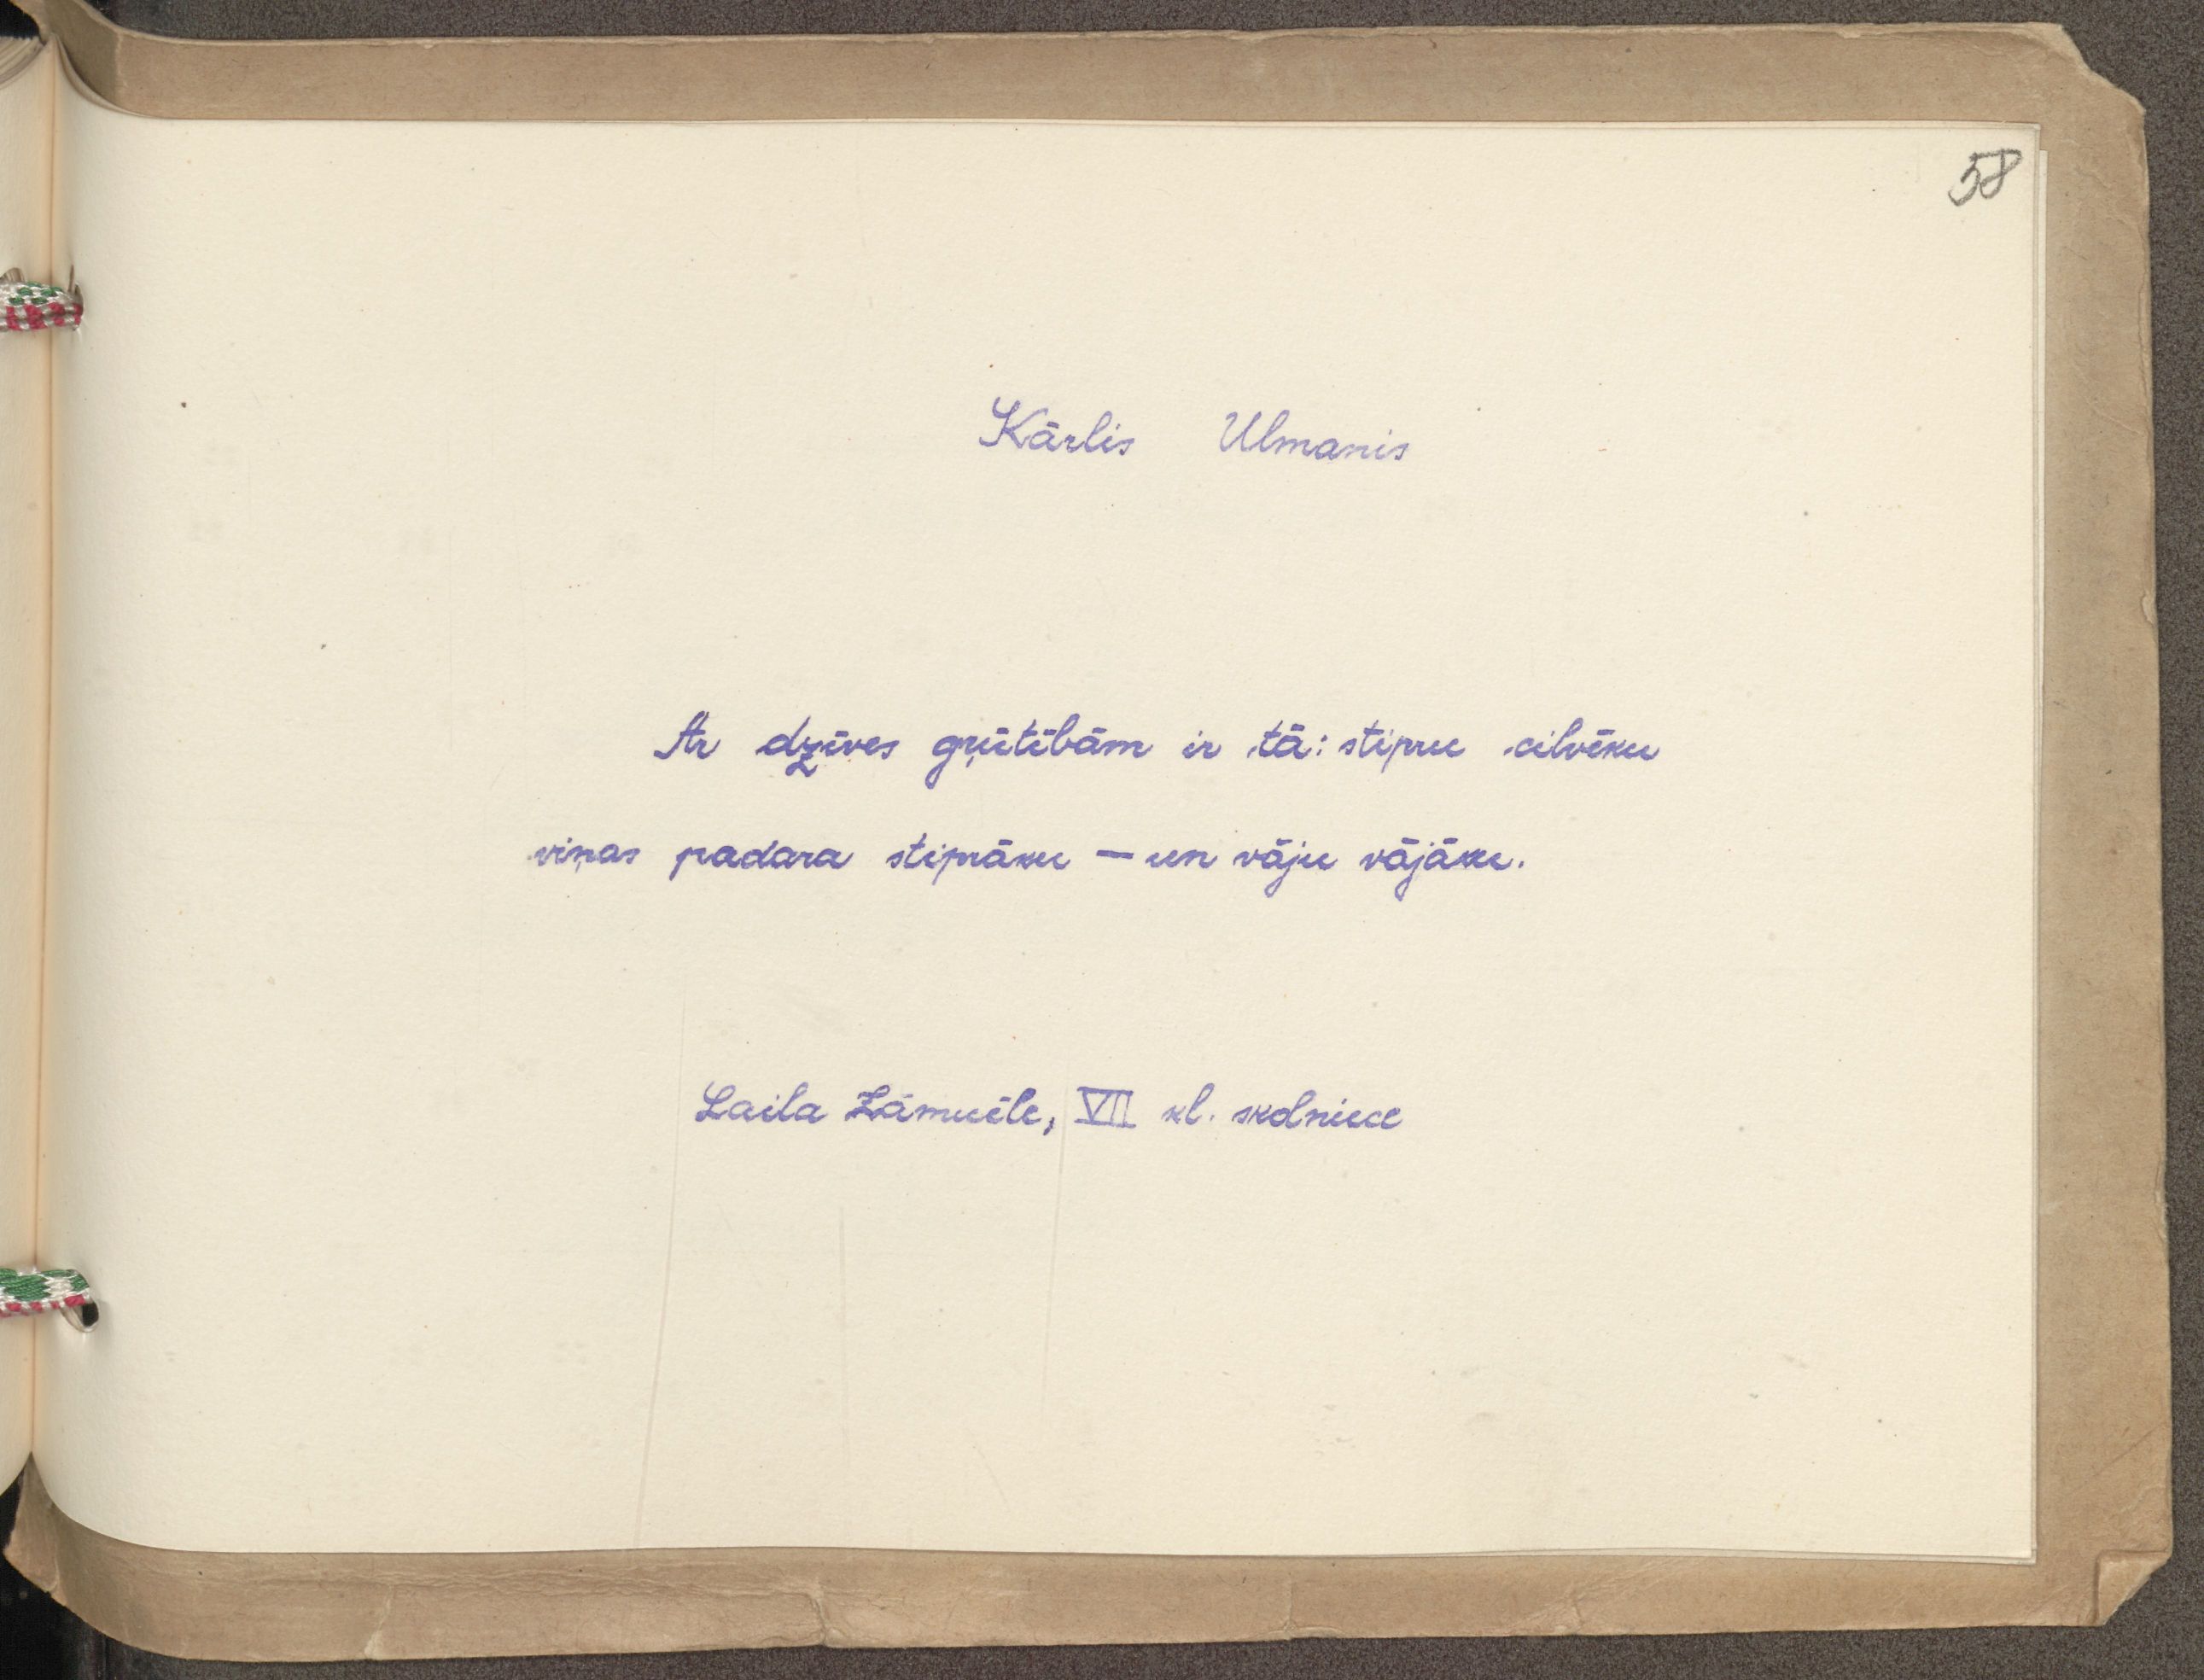 58
Kārlis Ulmanis
Ar dzīves grūtībām ir tā: stipru cilvēku
viņas padara stiprāku — un vāju vājāku.
Laila Zāmuēle, VII kl. skolniece